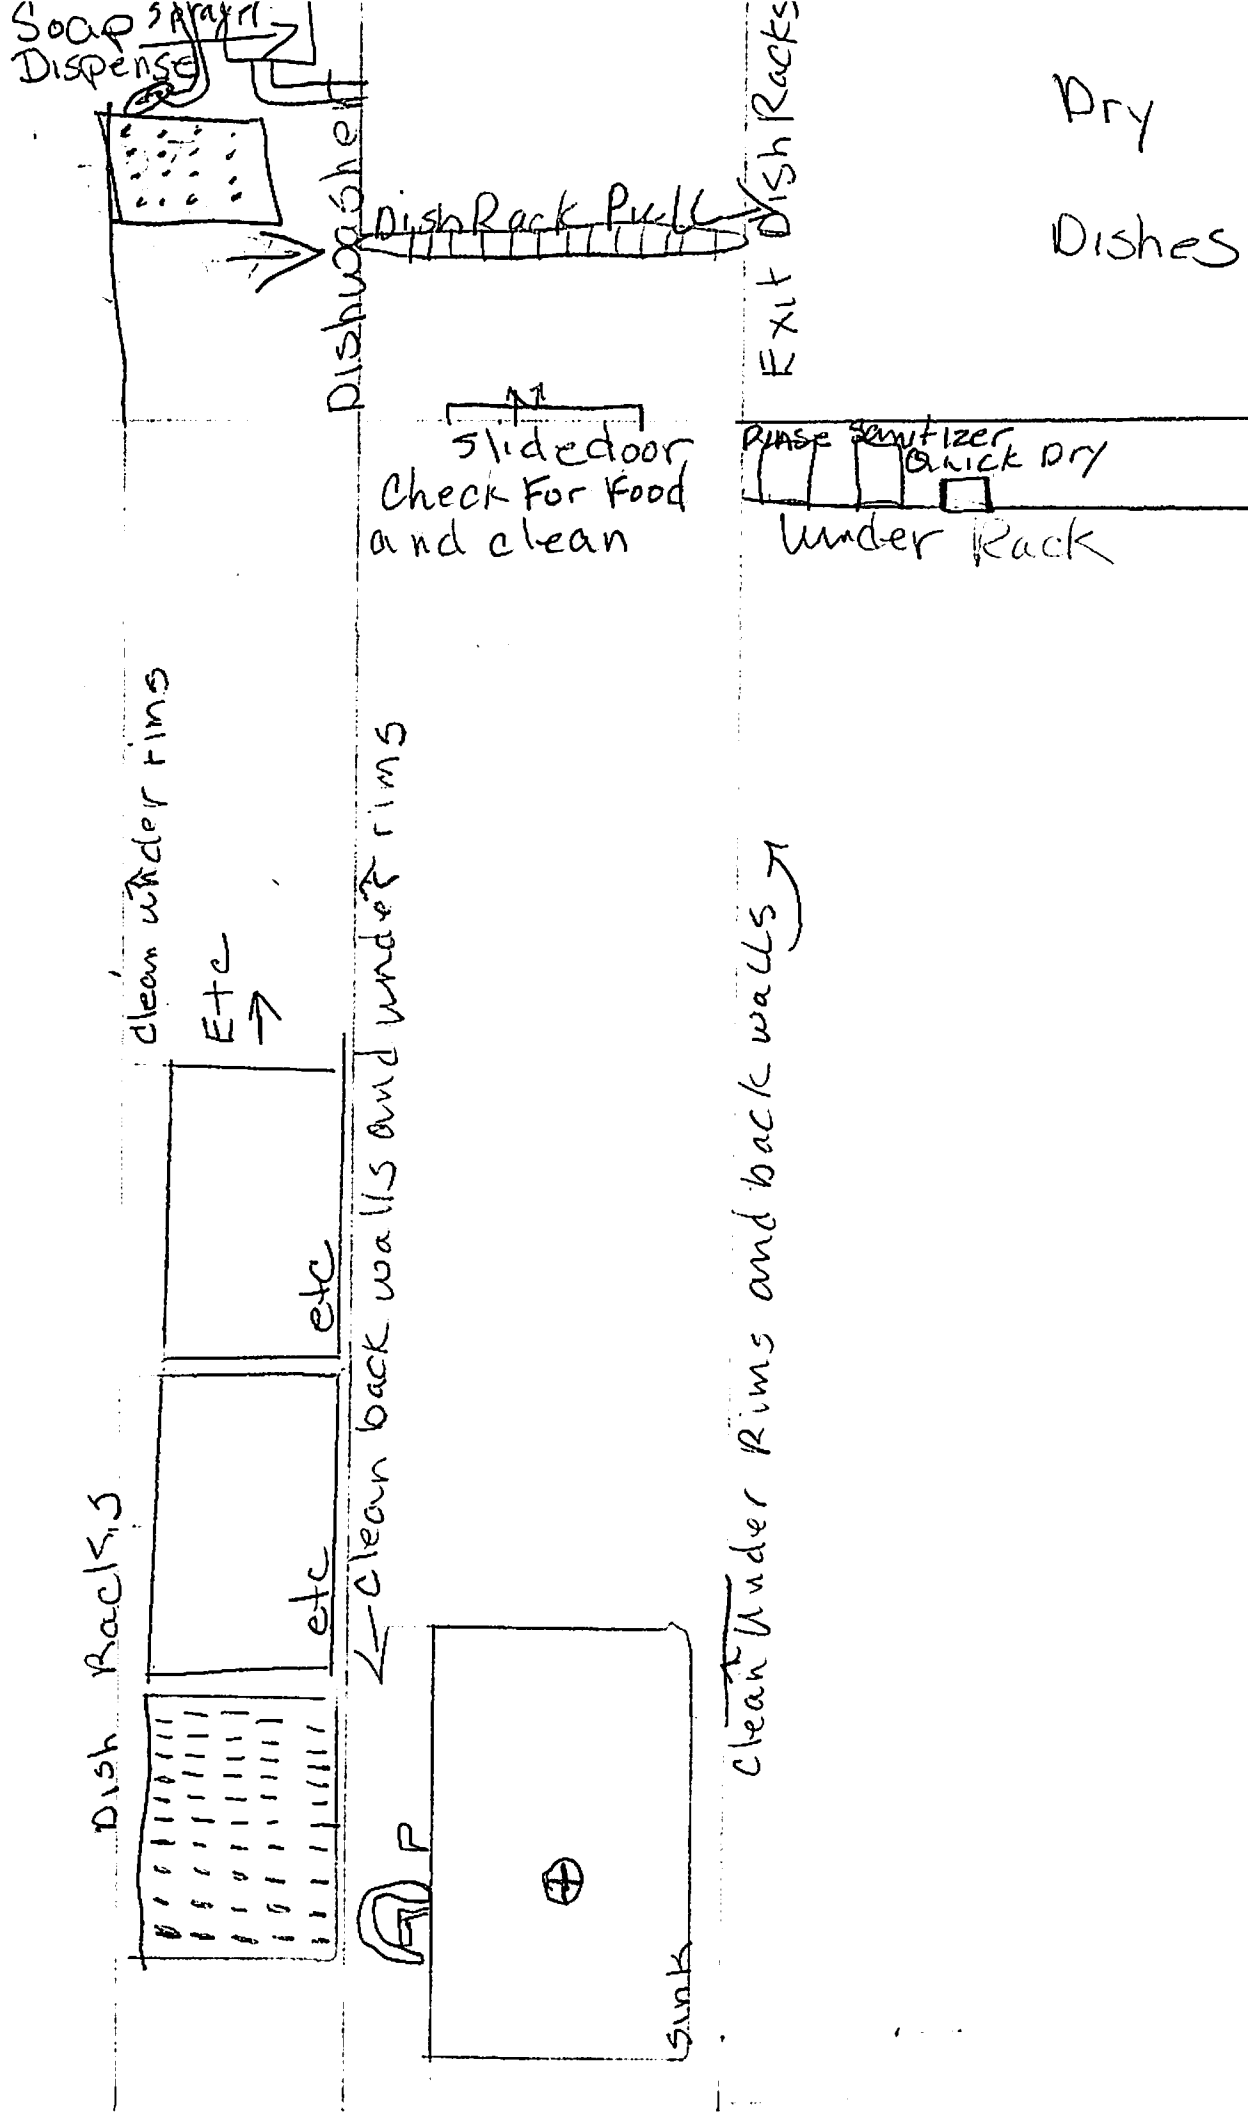 Soap
Dispense
Sprayer
Dishwasher
Dish Rack Pull
Exit Dish Racks
Dry
Dishes
Slidedoor
Check For Food
and clean
Rinse Sanitizer
Quick Dry
Under Rack
clean under rims
Etc
Clean back walls and under rims
etc
etc
Dish Racks
P
Sink
Clean Under Rims and back walls